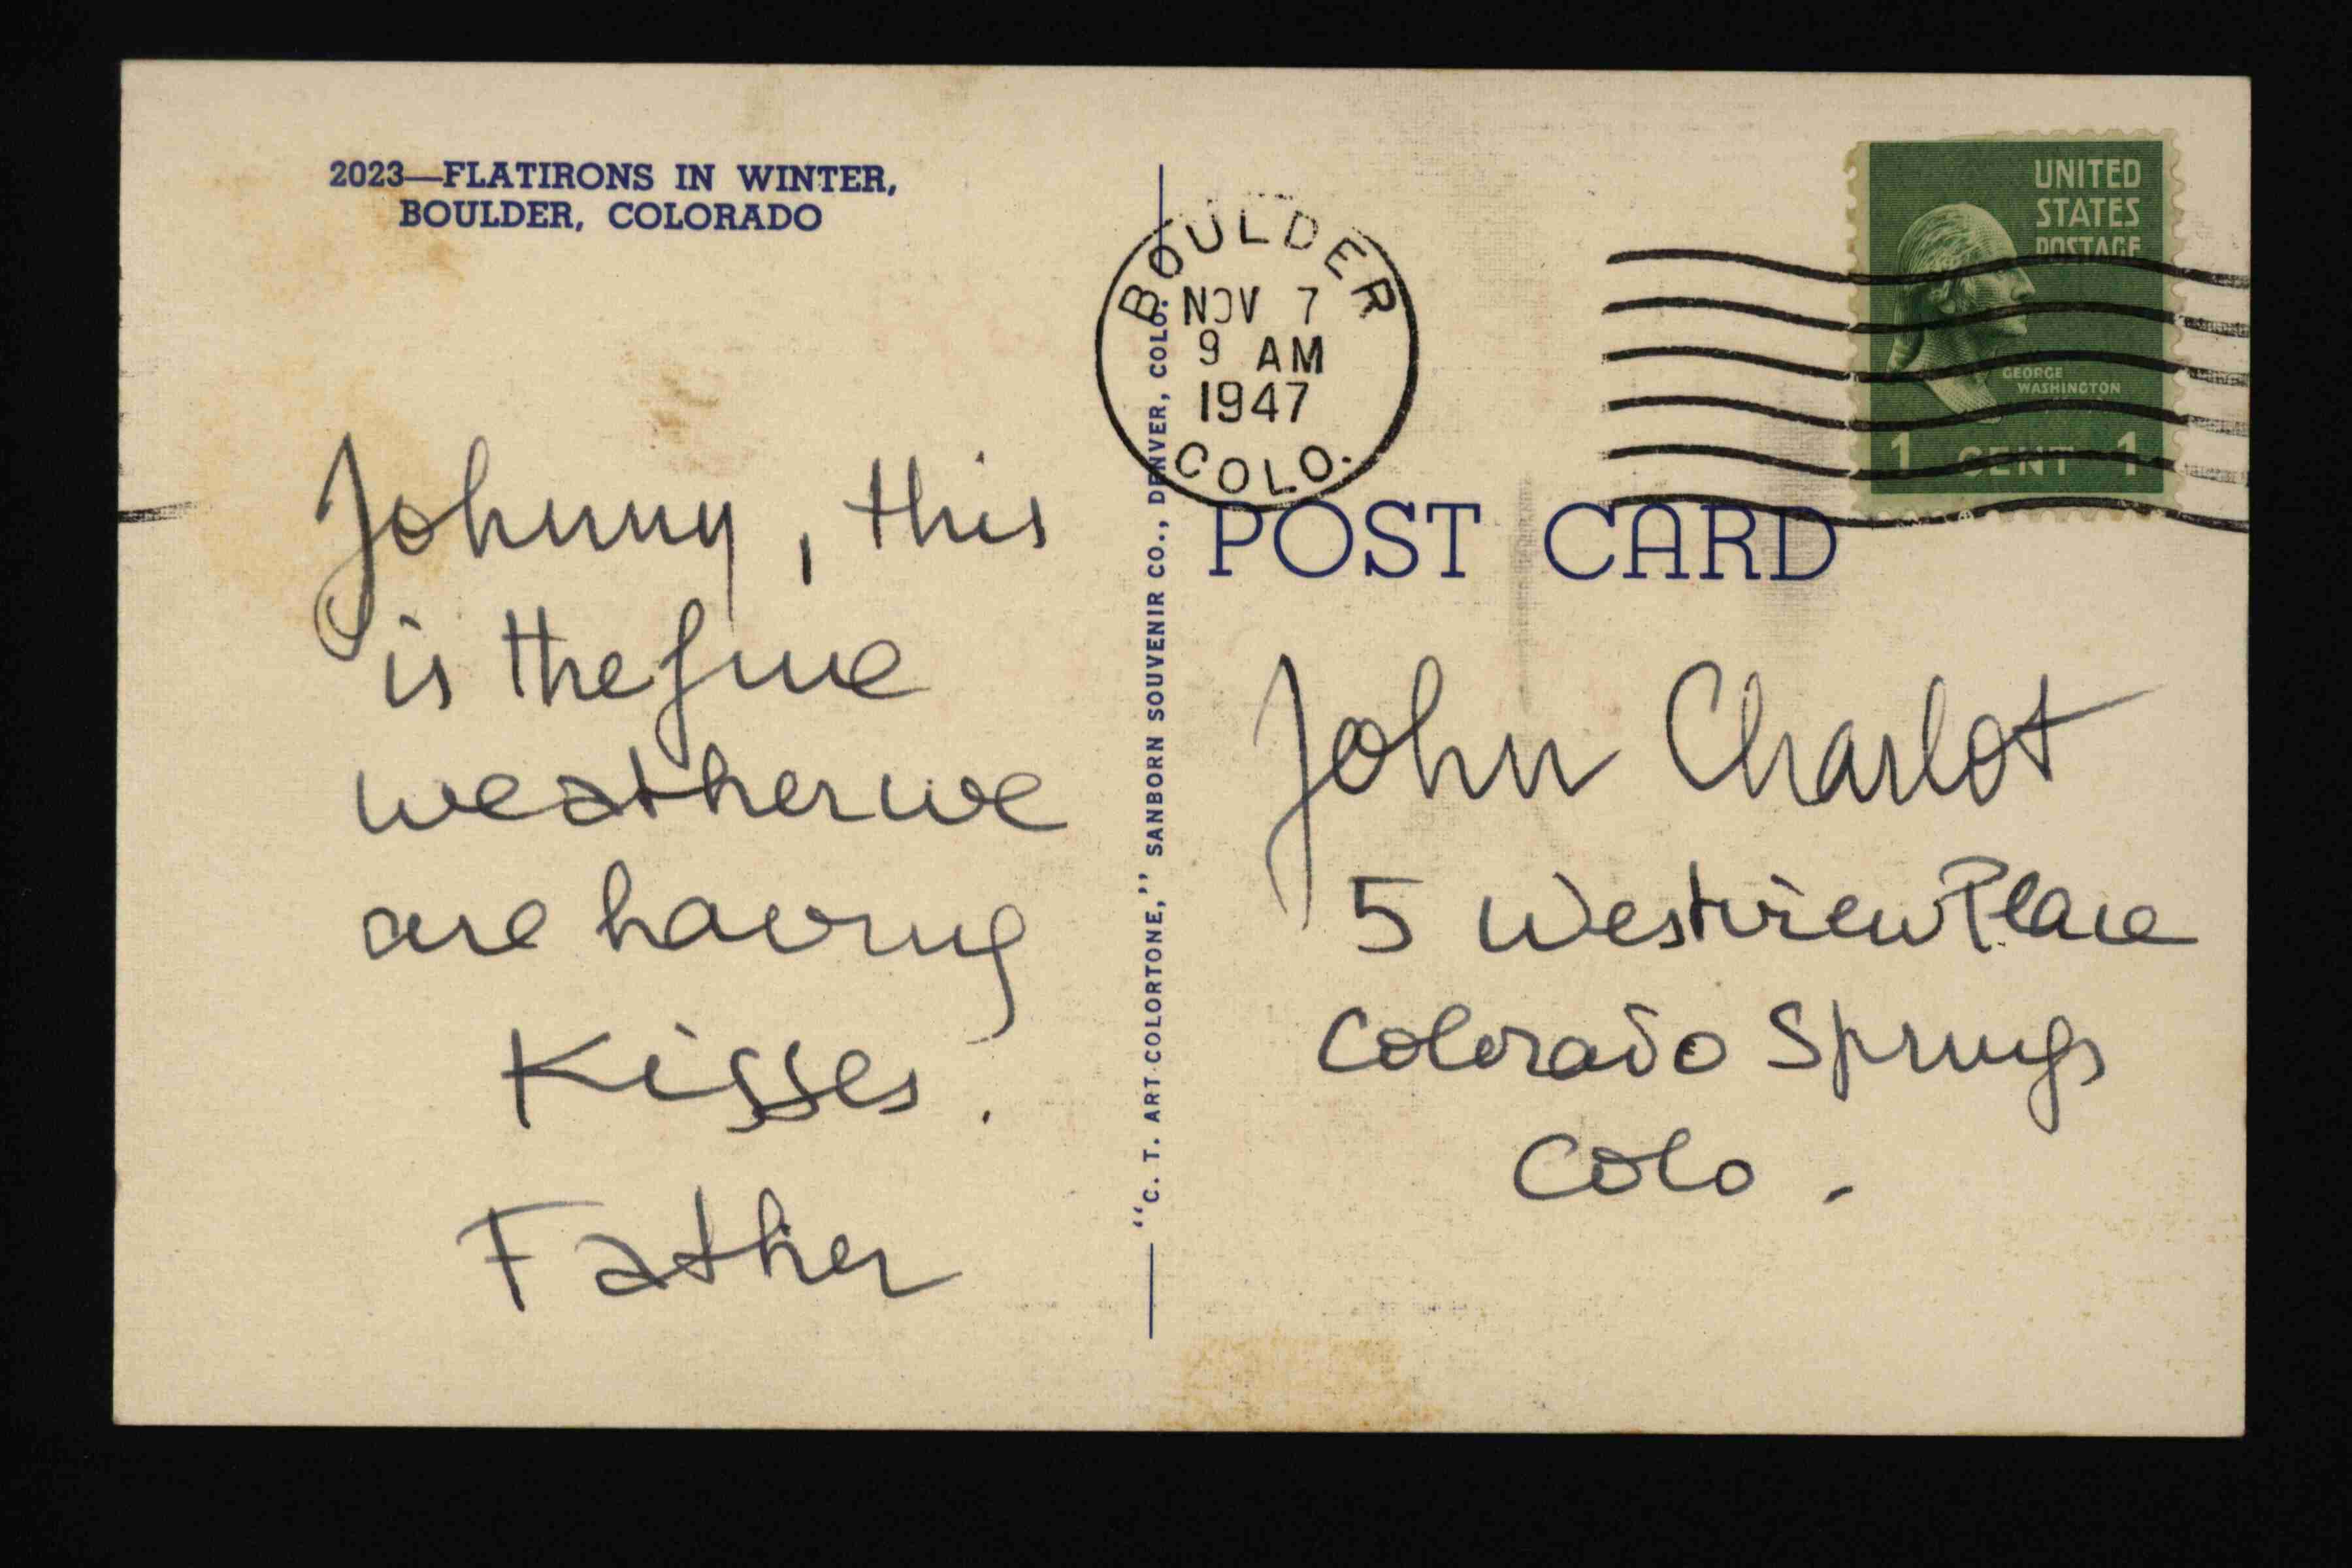 2023—FLATIRONS IN WINTER,
BOULDER, COLORADO
Johnny, this
is the fine
weather we
are having
Kisses.
Father
"C. T. ART-COLORTONE," SANBORN SOUVENIR CO., DENVER, COLO.
BOULDER
NOV 7
9 AM
1947
COLO.
UNITED
STATES
POSTAGE
GEORGE
WASHINGTON
1 CENT 1
POST CARD
John Charlot
5 Westview Place
Colorado Springs
Colo.